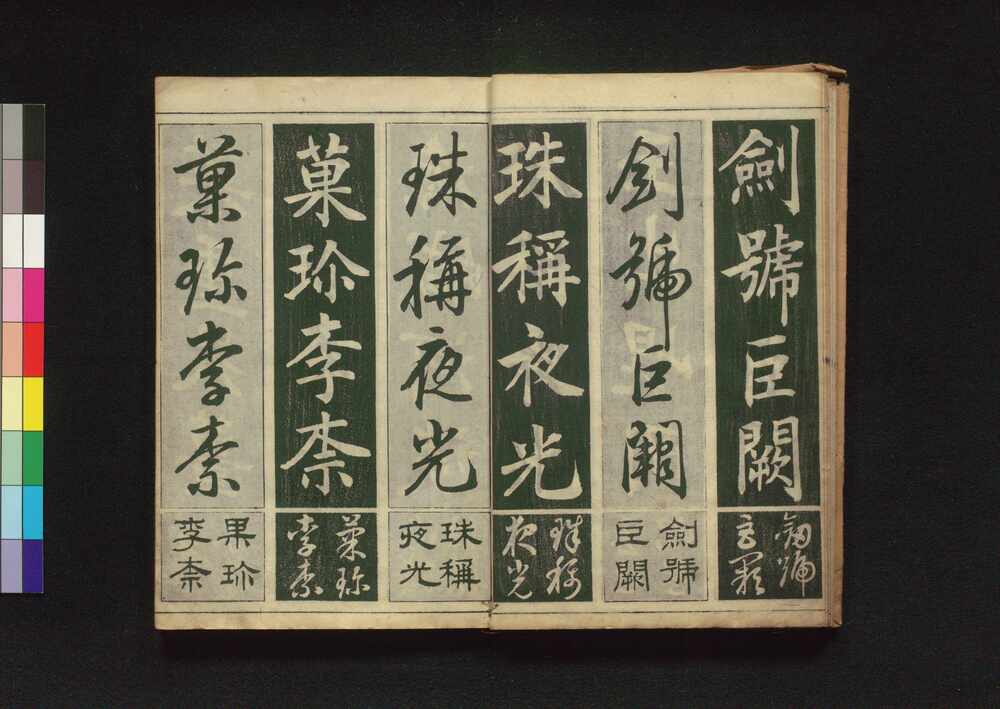 劍號巨闕
劍號
巨闕
劍號巨闕
劍號
巨闕
珠稱夜光
珠稱
夜光
珠稱夜光
珠稱
夜光
菓珍李柰
菓珍
李柰
菓珍李柰
果珍
李柰